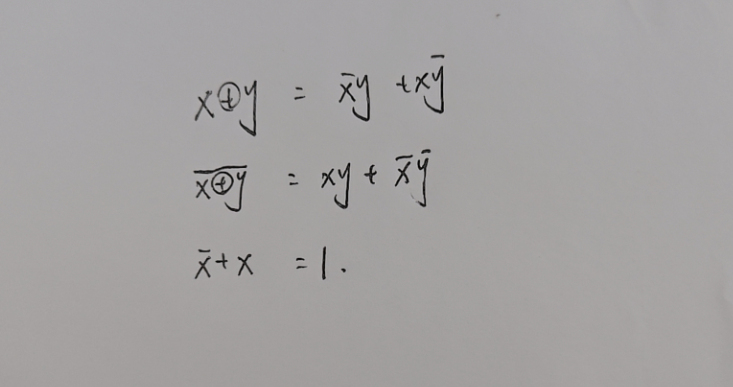 x⊕y = x̄y + xȳ
x̅⊕̅y̅ = xy + x̄ȳ
x̄ + x = 1.